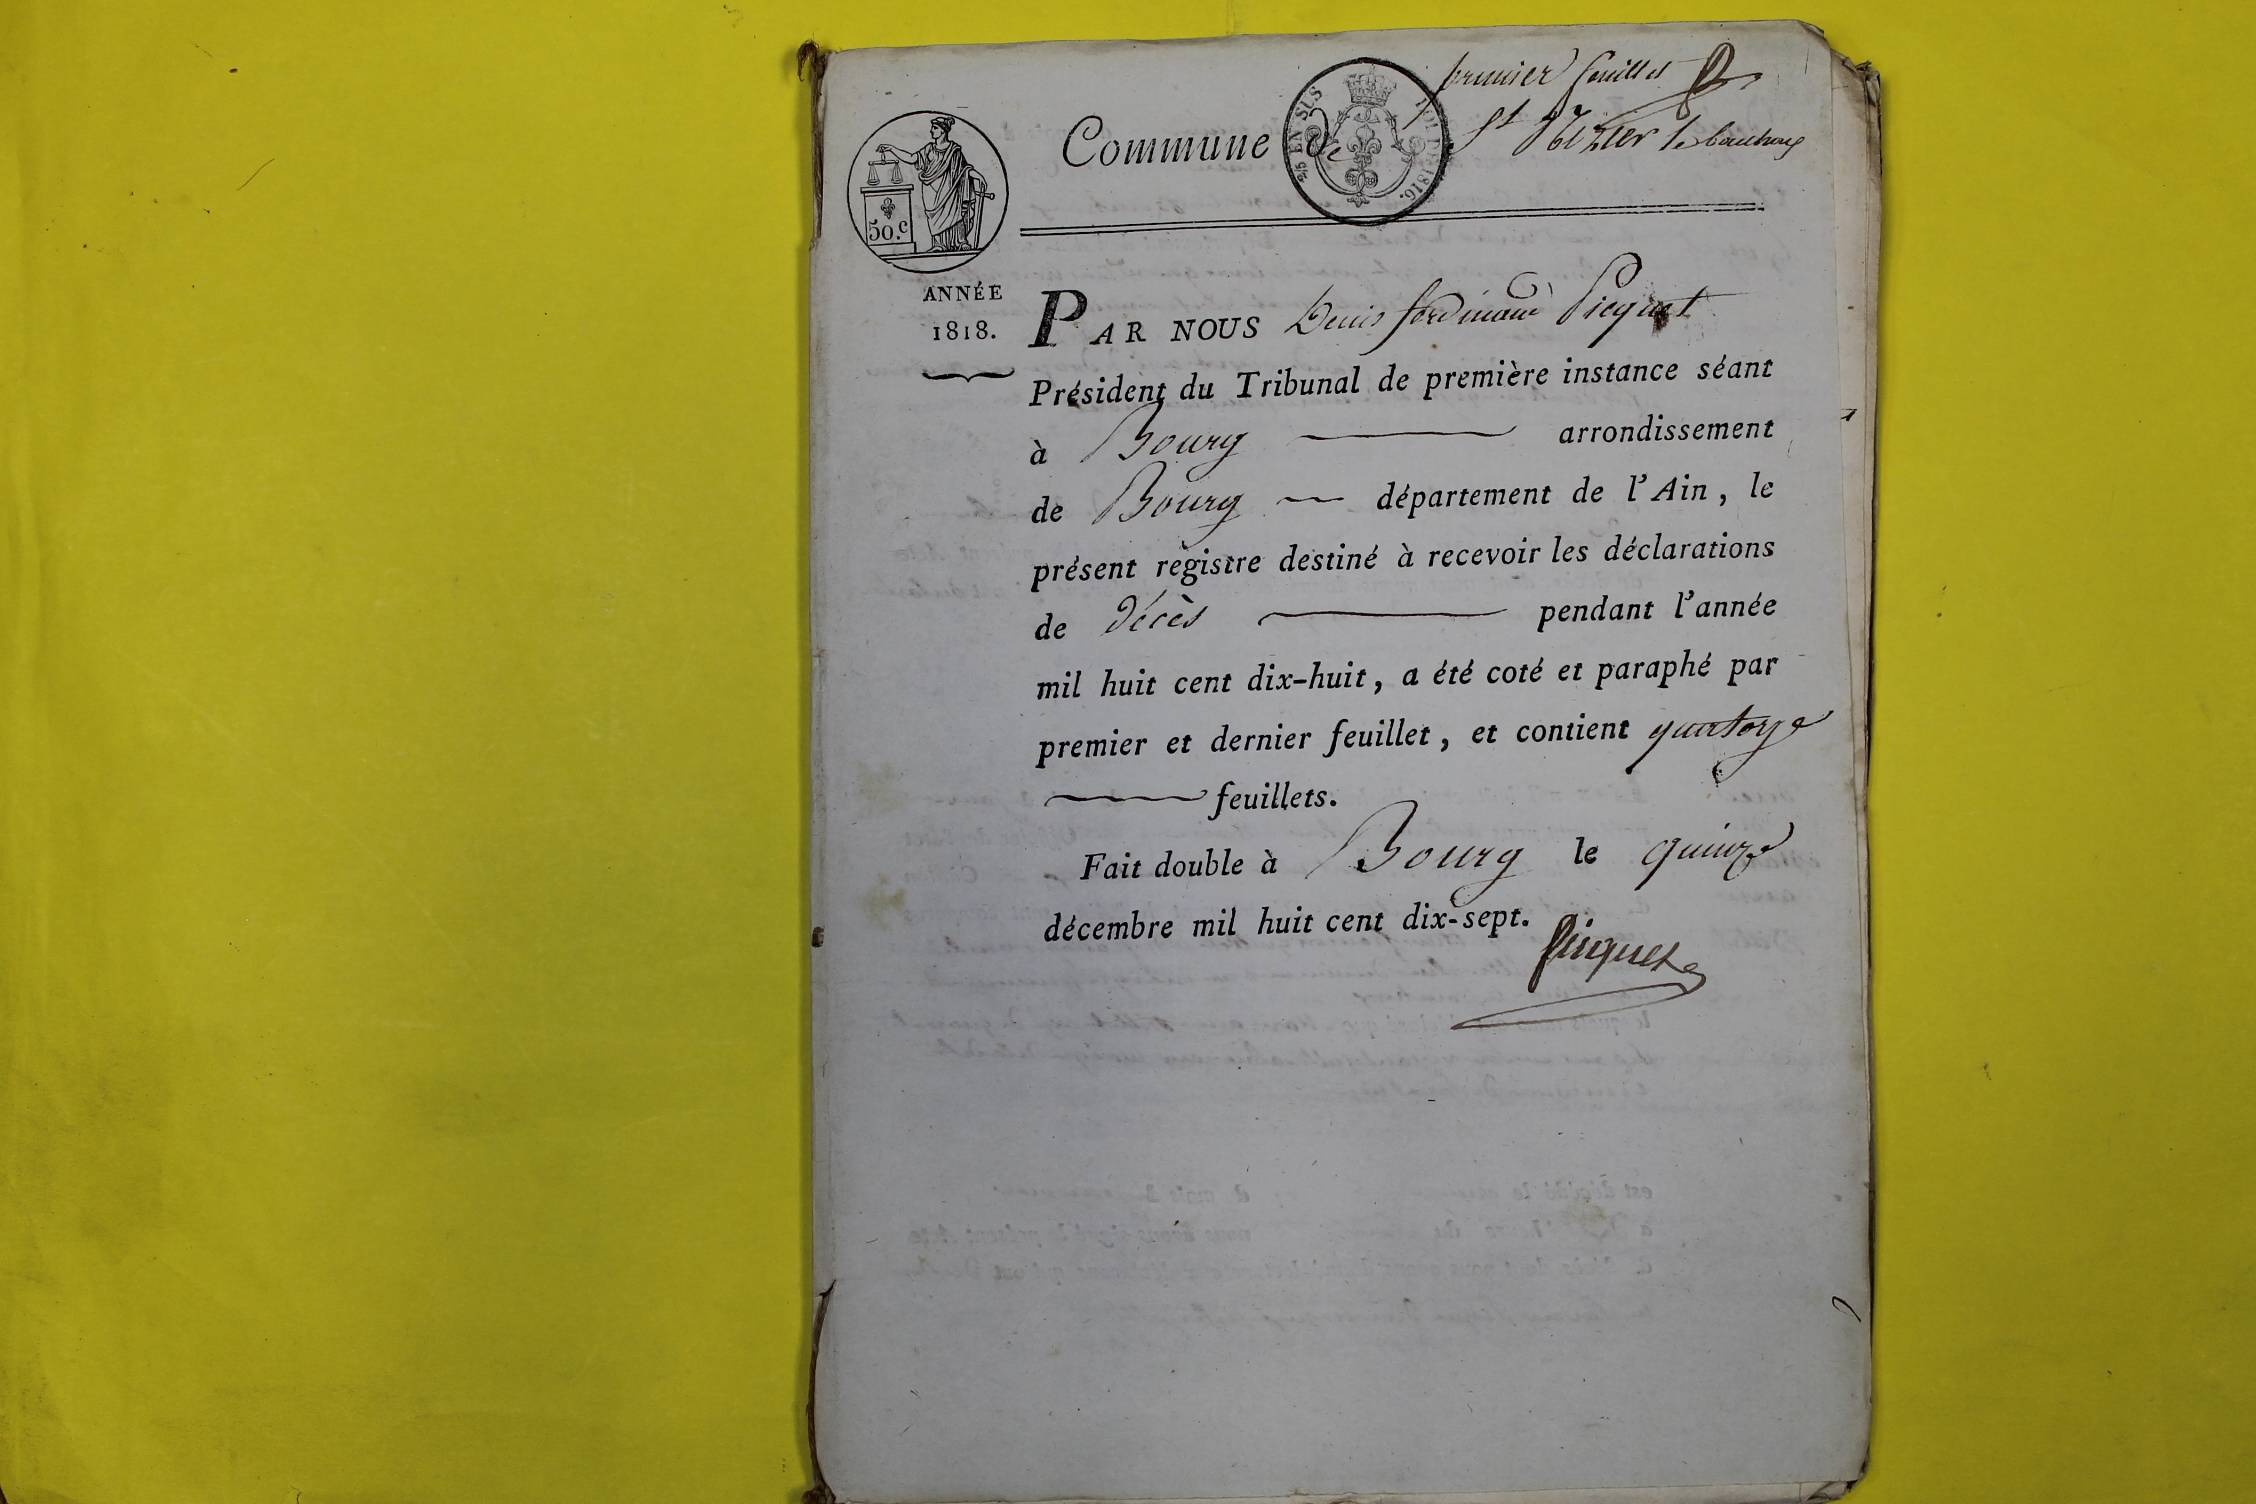 premier feuillet
Commune de St Nizier le bouchoux
2/5 EN SUS
LOI DE 1816.
50.c
ANNÉE
1818.
PAR NOUS Denis ferdinand Picquet
Président du Tribunal de première instance séant
à Bourg arrondissement
de Bourg département de l'Ain, le
présent règistre destiné à recevoir les déclarations
de décès pendant l'année
mil huit cent dix-huit, a été coté et paraphé par
premier et dernier feuillet, et contient quatorze
feuillets.
Fait double à Bourg le quinze
décembre mil huit cent dix-sept.
Picquet